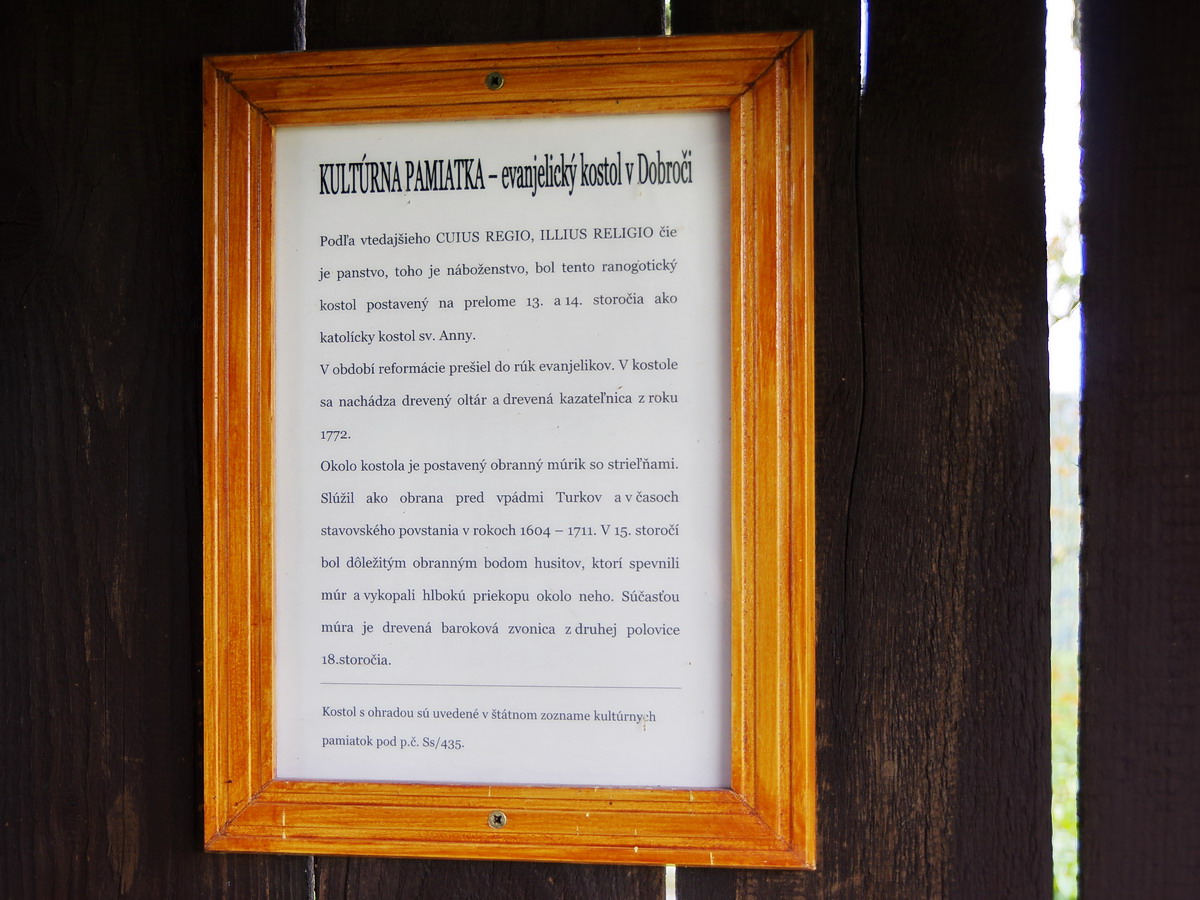 KULTÚRNA PAMIATKA – evanjelický kostol v Dobroči
Podľa vtedajšieho CUIUS REGIO, ILLIUS RELIGIO čie
je panstvo, toho je náboženstvo, bol tento ranogotický
kostol postavený na prelome 13. a 14. storočia ako
katolícky kostol sv. Anny.
V období reformácie prešiel do rúk evanjelikov. V kostole
sa nachádza drevený oltár a drevená kazateľnica z roku
1772.
Okolo kostola je postavený obranný múrik so strieľňami.
Slúžil ako obrana pred vpádmi Turkov a v časoch
stavovského povstania v rokoch 1604 – 1711. V 15. storočí
bol dôležitým obranným bodom husitov, ktorí spevnili
múr a vykopali hlbokú priekopu okolo neho. Súčasťou
múra je drevená baroková zvonica z druhej polovice
18.storočia.
Kostol s ohradou sú uvedené v štátnom zozname kultúrnych
pamiatok pod p.č. Ss/435.